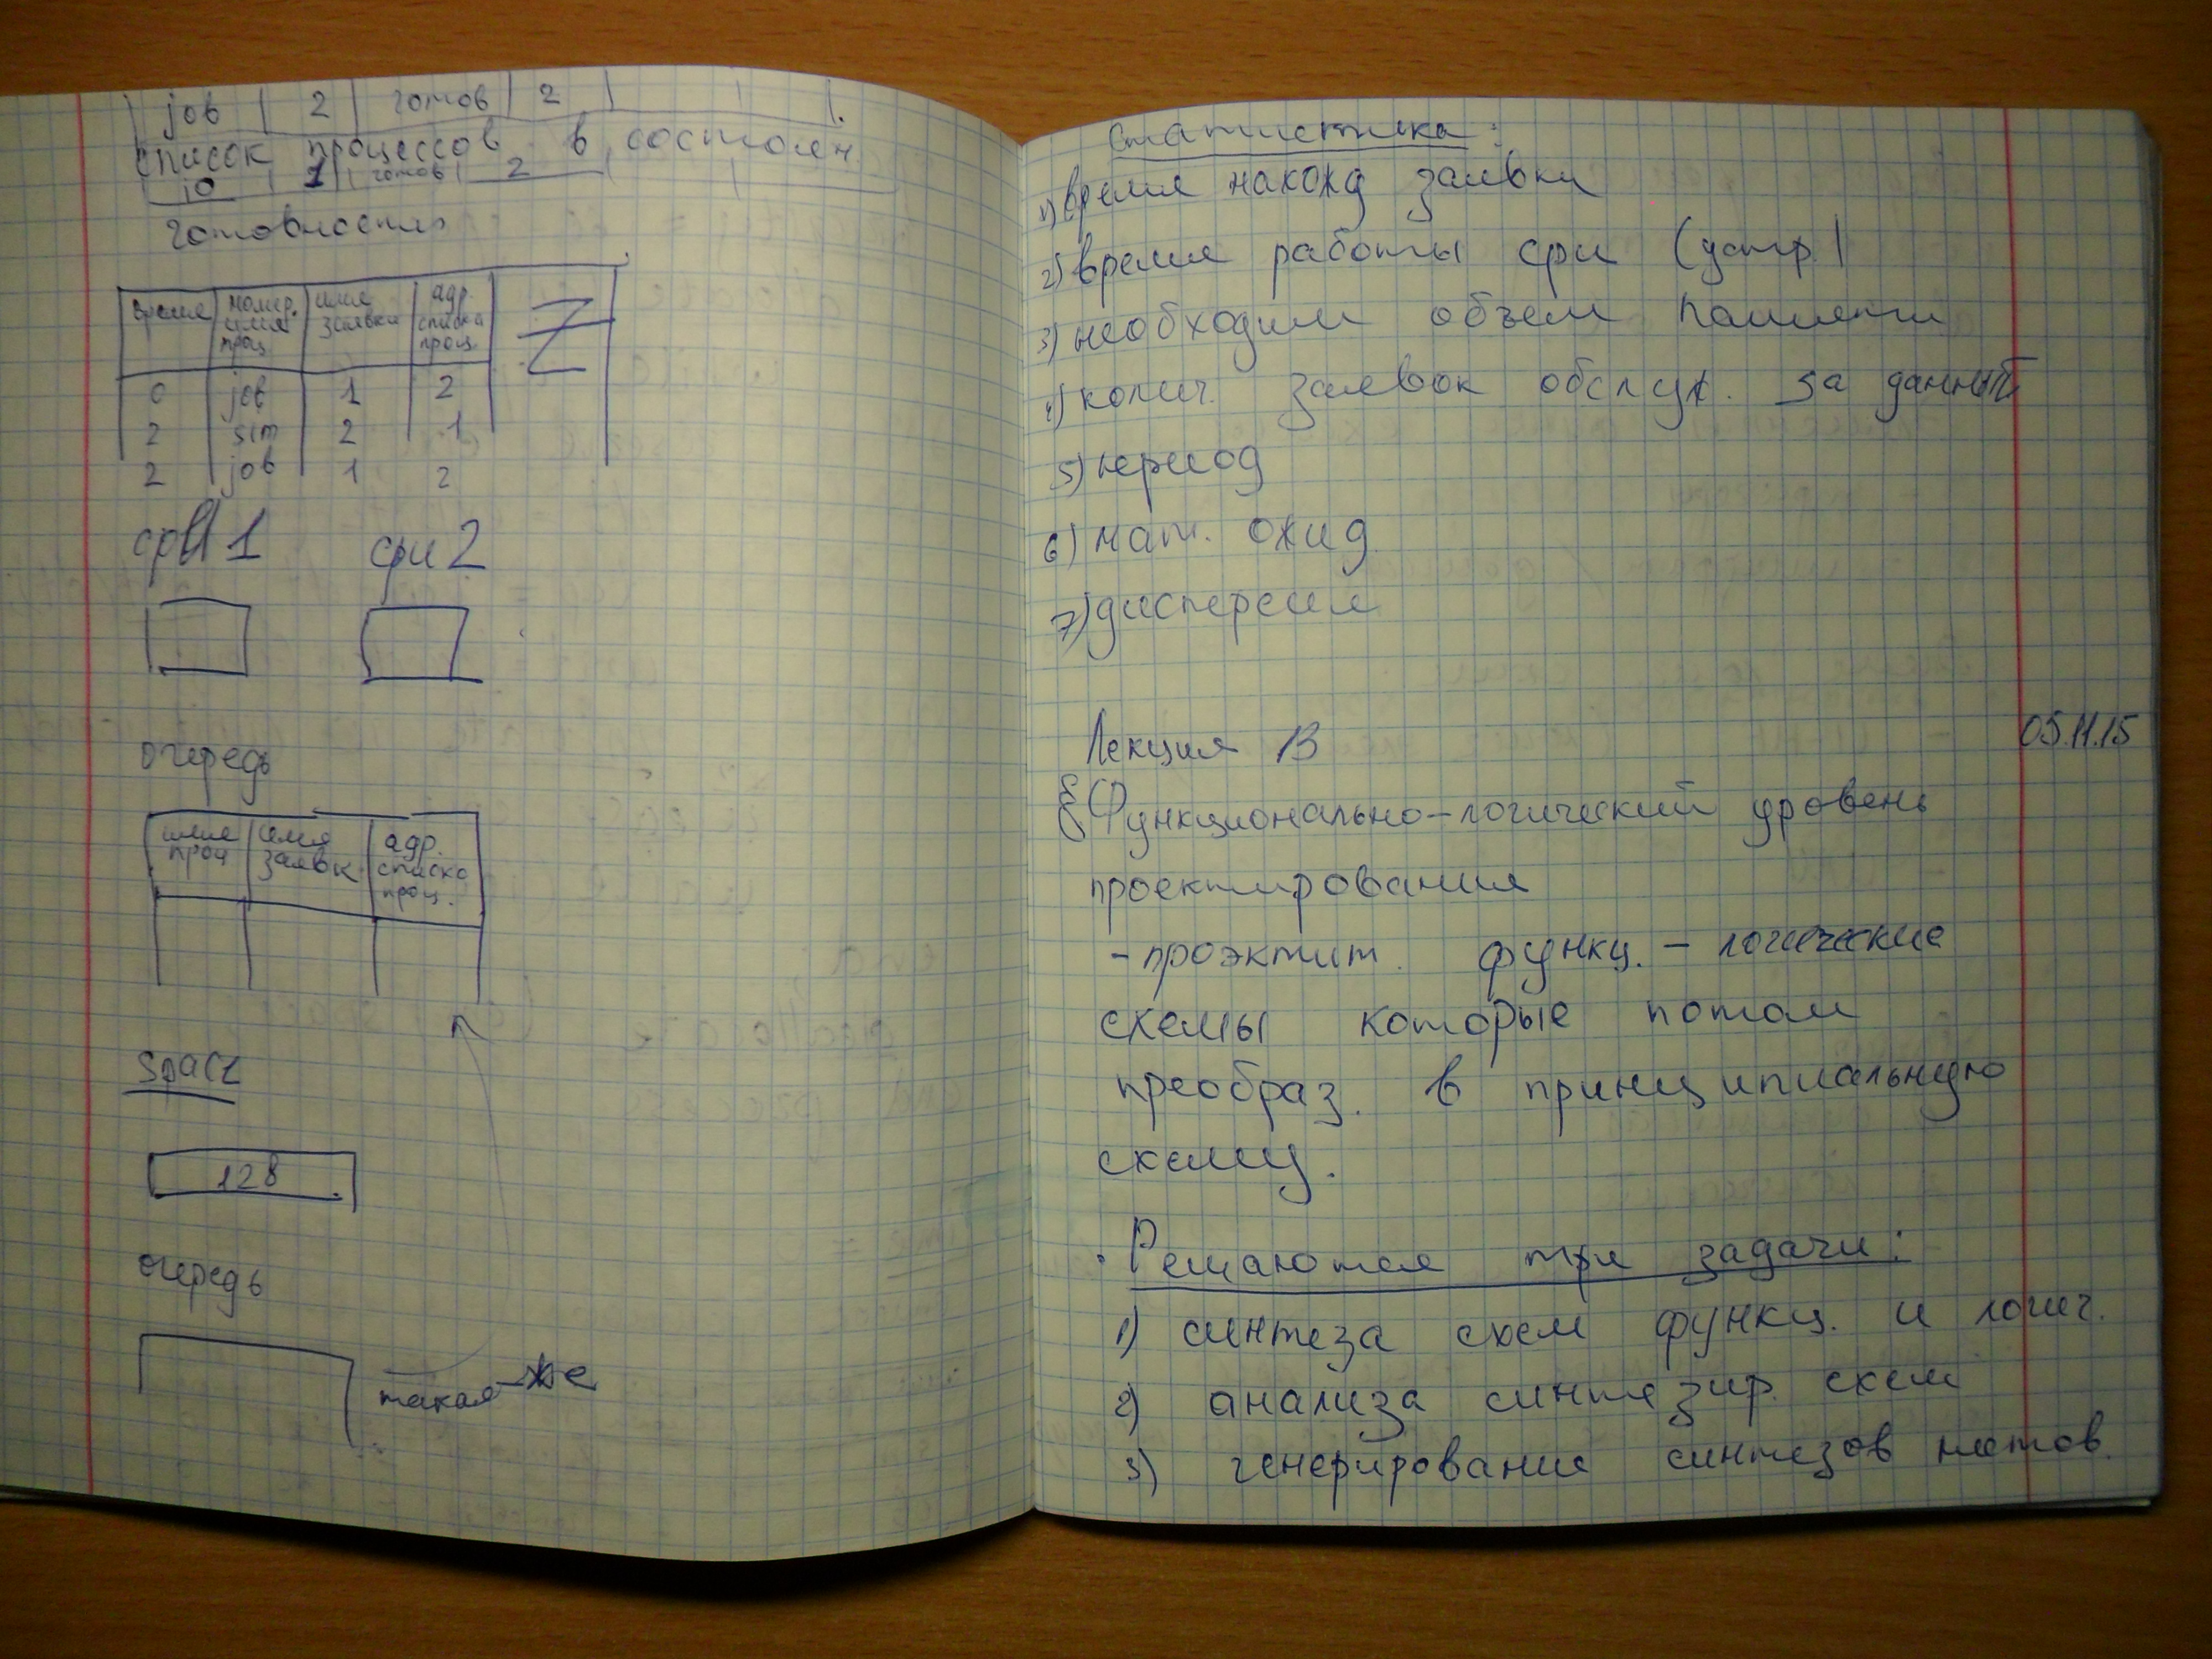 job | 2 | готов | 2
список процессов в состоян.
io | 1 | готов | 2
готовности
время | номер. имя проц | имя заявки | адр. списка проц.
0 | job | 1 | 2
2 | sim | 2 | 1
2 | job | 1 | 2
cpu 1 cpu 2
очередь
имя проц | имя заявк | адр. списка проц.
space
128
очередь
такая-же
Статистика:
1) время нахожд заявки
2) время работы cpu (устр)
3) необходим объем памяти
4) колич. заявок обслуж. за данный
5) период
6) мат. ожид
7) дисперсия
Лекция 13 05.11.15
§ Функционально-логический уровень
проектирования
- проэктит. функц. - логические
схемы которые потом
преобраз. в принципиальную
схему.
. Решаются три задачи:
1) синтеза схем функц. и логич.
2) анализа синтезир. схем
3) генерирование синтезов